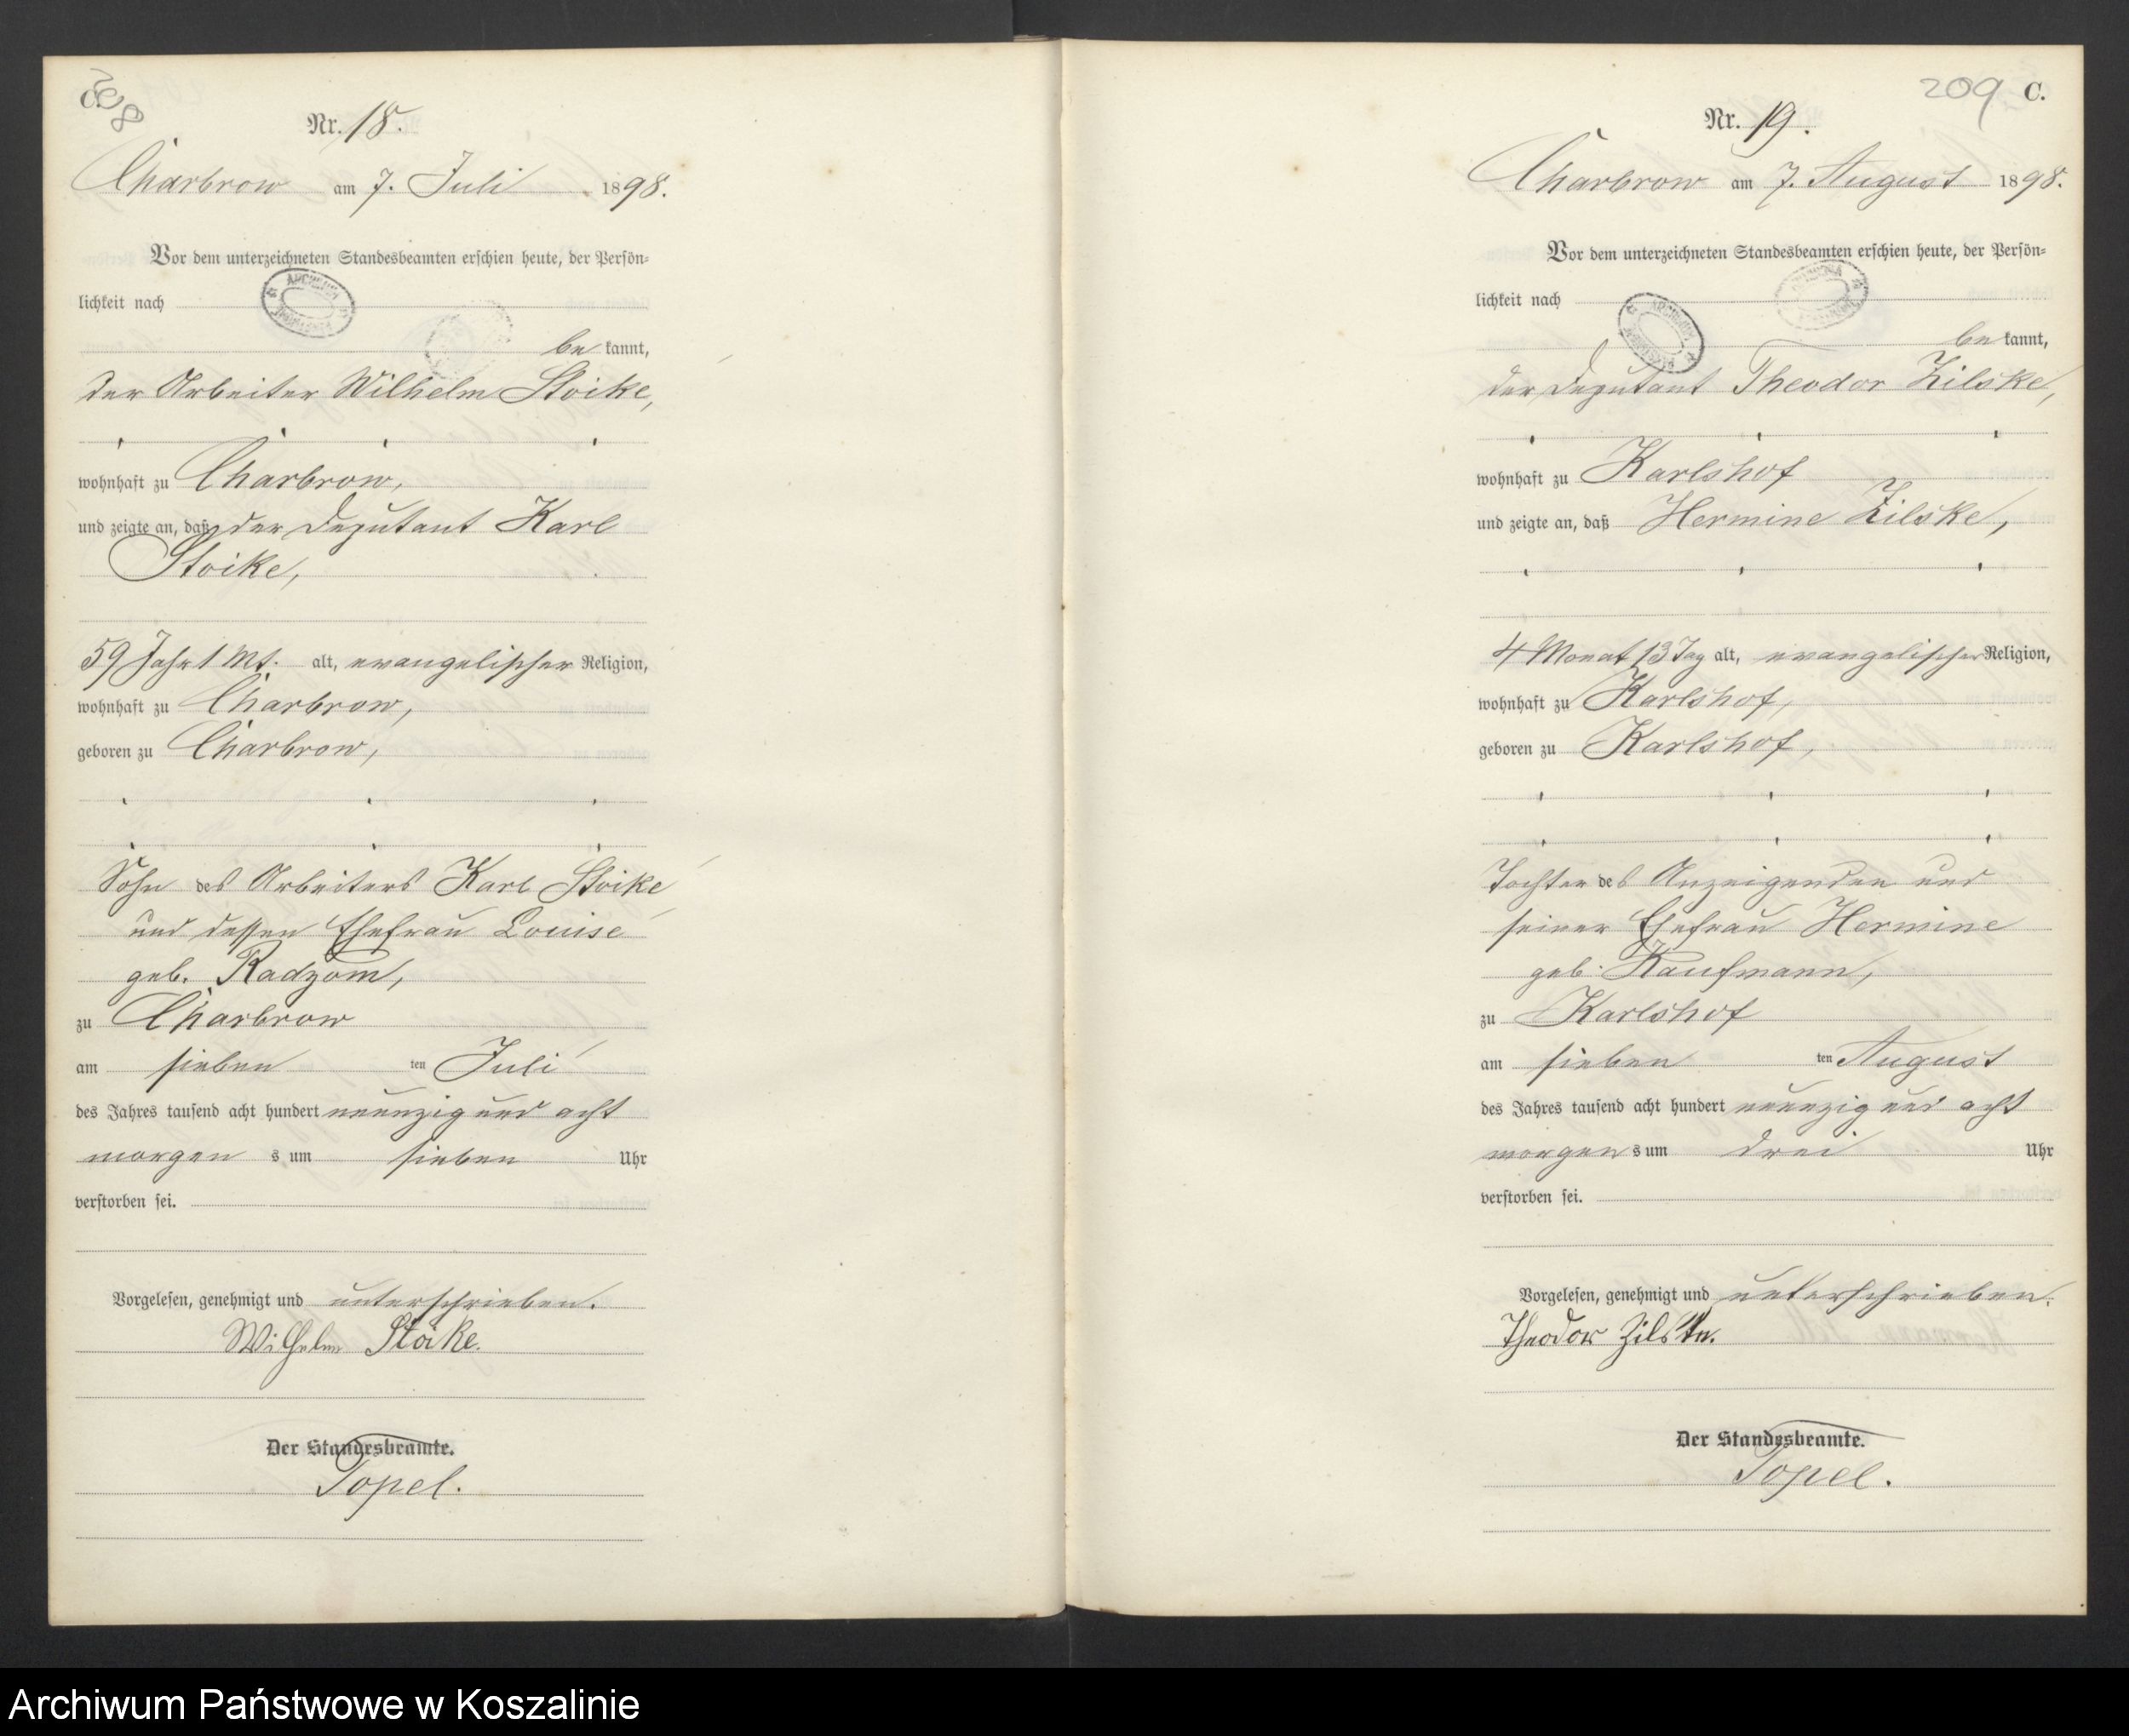 C.
208
Nr. 18.
Charbrow am 7. Juli 1898.
Vor dem unterzeichneten Standesbeamten erschien heute, der Persön-
lichkeit nach
be kannt,
der Arbeiter Wilhelm Stoike,
wohnhaft zu Charbrow,
und zeigte an, daß der Deputant Karl
Stoike,
59 Jahr 1 Mt. alt, evangelischer Religion,
wohnhaft zu Charbrow,
geboren zu Charbrow,
Sohn des Arbeiters Karl Stoike
und dessen Ehefrau Louise
geb. Radzom,
zu Charbrow
am sieben ten Juli
des Jahres tausend acht hundert neunzig und acht
morgen s um sieben Uhr
verstorben sei.
Vorgelesen, genehmigt und unterschrieben.
Wilhelm Stoike.
Der Standesbeamte.
Topel.
209 C.
Nr. 19.
Charbrow am 7. August 1898.
Vor dem unterzeichneten Standesbeamten erschien heute, der Persön-
lichkeit nach
be kannt,
der Deputant Theodor Zilske,
wohnhaft zu Karlshof
und zeigte an, daß Hermine Zilske,
4 Monat 13 Tag alt, evangelischer Religion,
wohnhaft zu Karlshof,
geboren zu Karlshof,
Tochter des Anzeigenden und
seiner Ehefrau Hermine
geb. Kaufmann,
zu Karlshof
am sieben ten August
des Jahres tausend acht hundert neunzig und acht
morgen s um drei Uhr
verstorben sei.
Vorgelesen, genehmigt und unterschrieben.
Theodor Zilske.
Der Standesbeamte.
Topel.
Archiwum Państwowe w Koszalinie